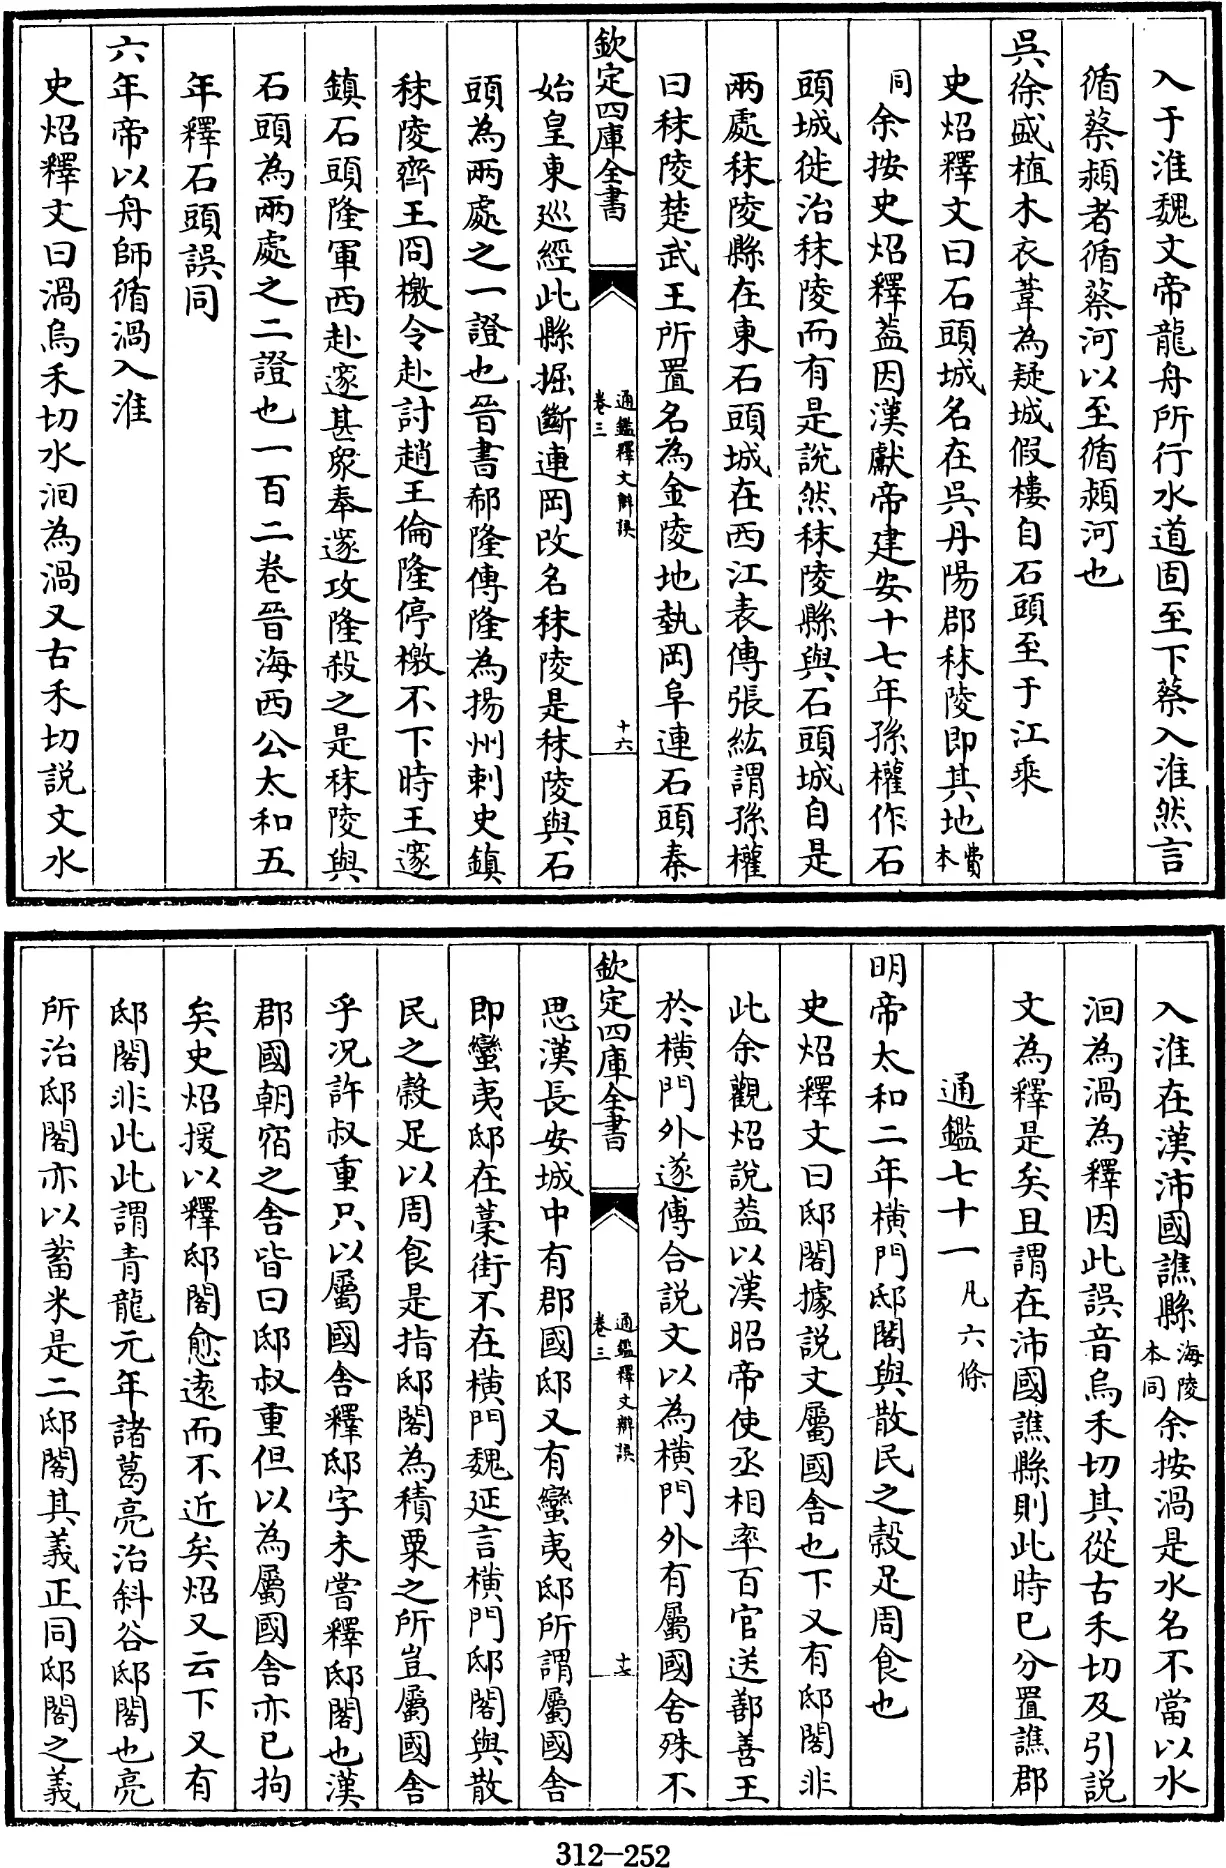 入于淮魏文帝龍舟所行水道固至下蔡入淮然言
循蔡潁者循蔡河以至循潁河也
吳徐盛植木衣葦為疑城假樓自石頭至于江乘
史炤釋文曰石頭城名在吳丹陽郡秣陵即其地費本
同余按史炤釋蓋因漢獻帝建安十七年孫權作石
頭城徙治秣陵而有是說然秣陵縣與石頭城自是
兩處秣陵縣在東石頭城在西江表傳張紘謂孫權
曰秣陵楚武王所置名為金陵地埶岡阜連石頭秦
欽定四庫全書
通鑑釋文辨誤
卷三
十六
始皇東巡經此縣掘斷連岡改名秣陵是秣陵與石
頭為兩處之一證也晉書郗隆傳隆為揚州刺史鎮
秣陵齊王冏檄令赴討趙王倫隆停檄不下時王邃
鎮石頭隆軍西赴邃甚衆奉邃攻隆殺之是秣陵與
石頭為兩處之二證也一百二卷晉海西公太和五
年釋石頭誤同
六年帝以舟師循渦入淮
史炤釋文曰渦烏禾切水洄為渦又古禾切説文水
入淮在漢沛國譙縣海陵本同余按渦是水名不當以水
洄為渦為釋因此誤音烏禾切其從古禾切及引説
文為釋是矣且謂在沛國譙縣則此時已分置譙郡
通鑑七十一凡六條
明帝太和二年橫門邸閣與散民之穀足周食也
史炤釋文曰邸閣據説文屬國舍也下又有邸閣非
此余觀炤說蓋以漢昭帝使丞相率百官送鄯善王
於橫門外遂傅合説文以為橫門外有屬國舍殊不
欽定四庫全書
通鑑釋文辨誤
卷三
十七
思漢長安城中有郡國邸又有蠻夷邸所謂屬國舍
即蠻夷邸在藁街不在橫門魏延言橫門邸閣與散
民之穀足以周食是指邸閣為積粟之所豈屬國舍
乎况許叔重只以屬國舍釋邸字未嘗釋邸閣也漢
郡國朝宿之舍皆曰邸叔重但以為屬國舍亦已拘
矣史炤援以釋邸閣愈遠而不近矣炤又云下又有
邸閣非此此謂青龍元年諸葛亮治斜谷邸閣也亮
所治邸閣亦以蓄米是二邸閣其義正同邸閣之義
312-252